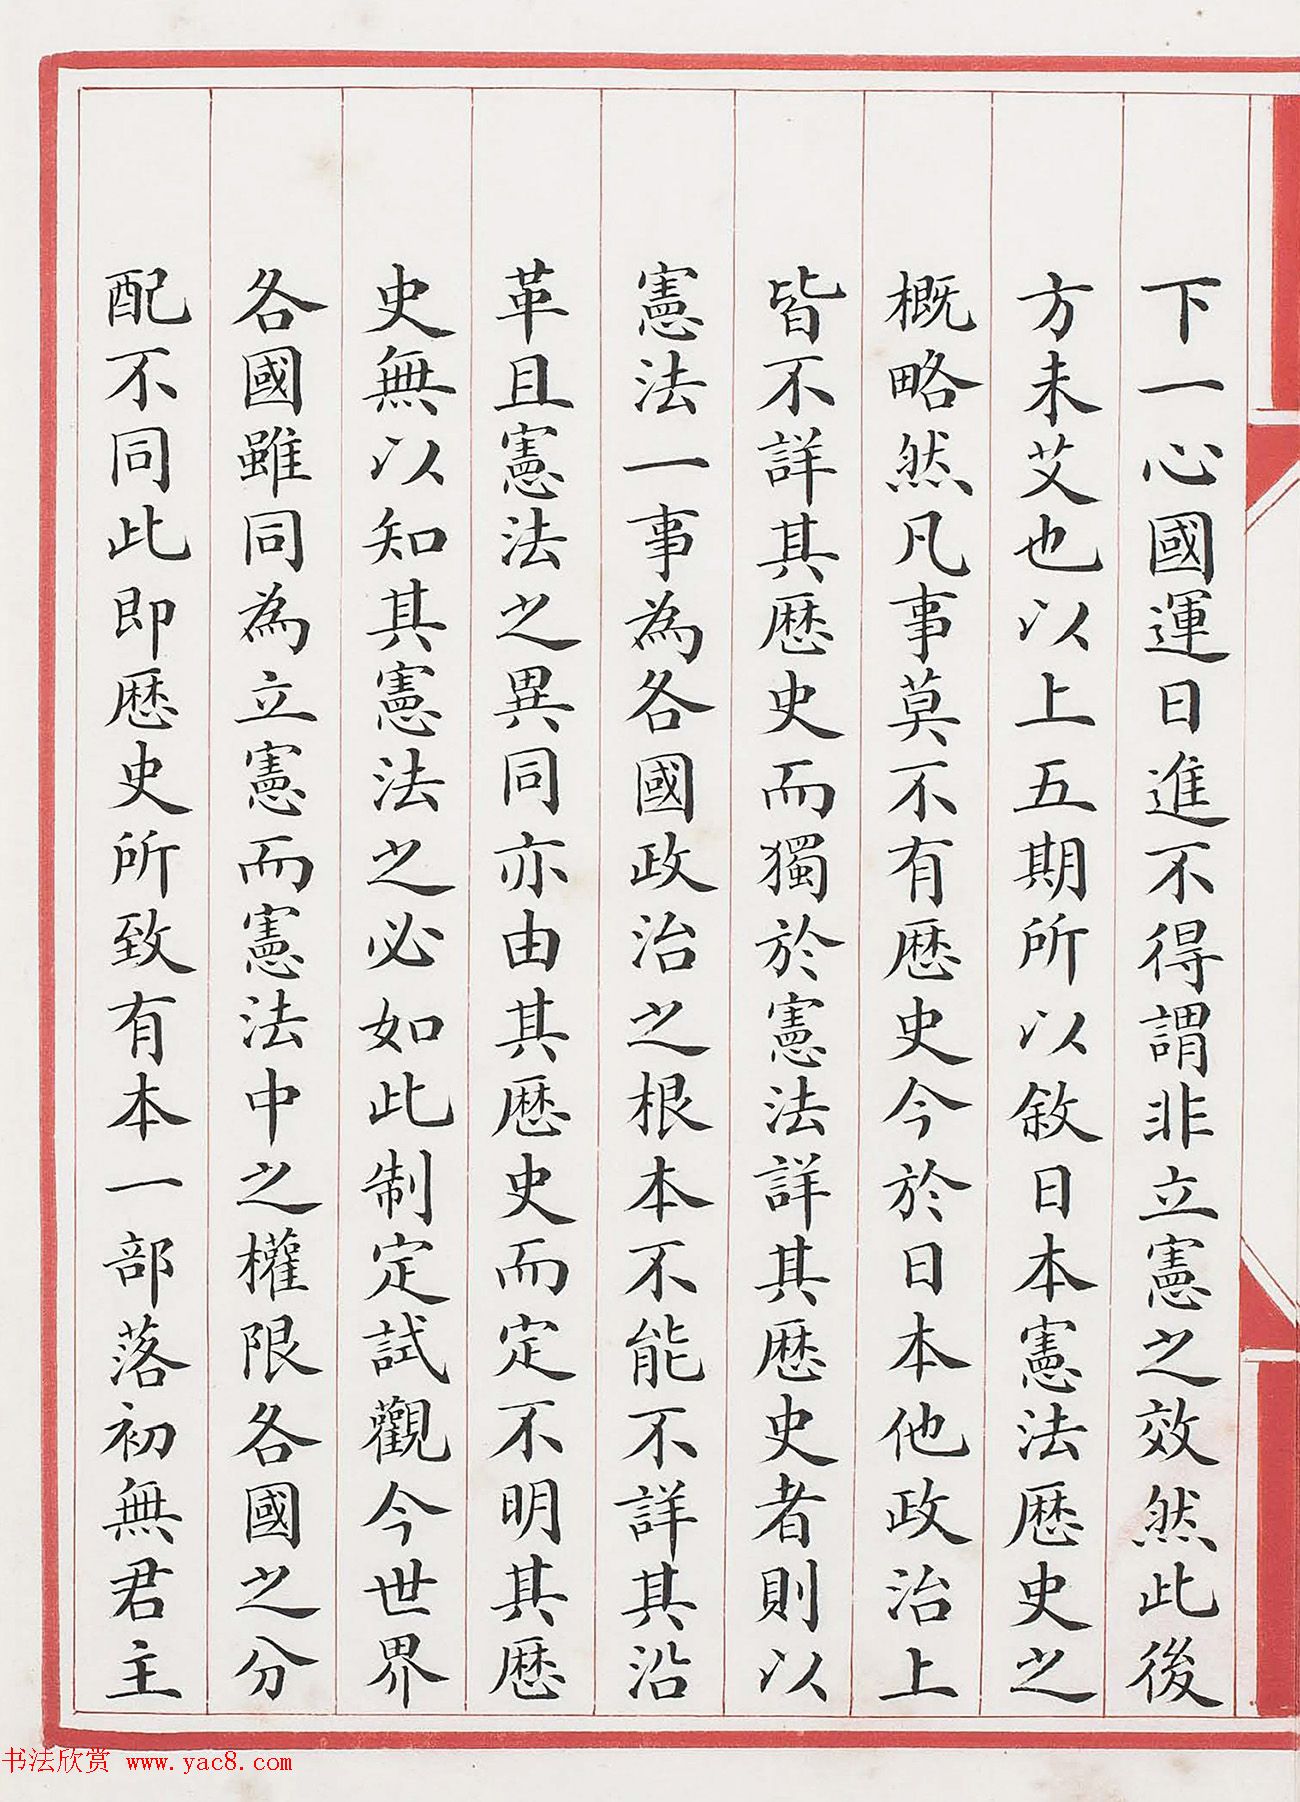 下一心國運日進不得謂非立憲之效然此後
方未艾也以上五期所以敘日本憲法歷史之
概略然凡事莫不有歷史今於日本他政治上
皆不詳其歷史而獨於憲法詳其歷史者則以
憲法一事為各國政治之根本不能不詳其沿
革且憲法之異同亦由其歷史而定不明其歷
史無以知其憲法之必如此制定試觀今世界
各國雖同為立憲而憲法中之權限各國之分
配不同此即歷史所致有本一部落初無君主
书法欣赏 www.yac8.com